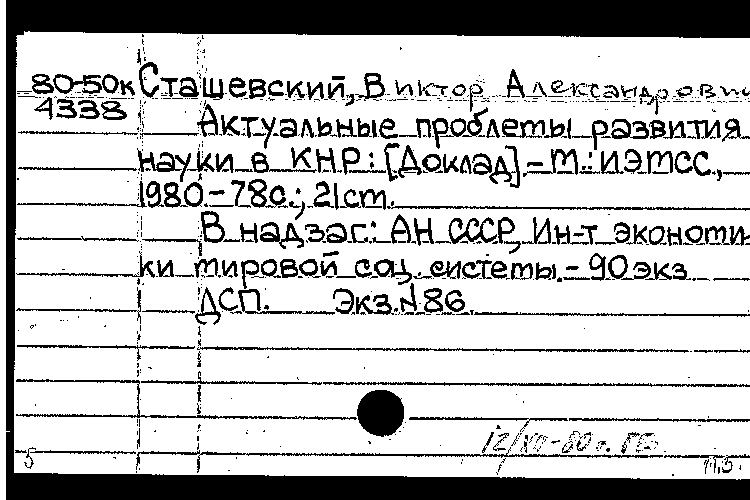 80-50к Сташевский, Виктор Александрович
4338
Актуальные проблемы развития
науки в КНР: [Доклад].- М.: ИЭМСС,
1980.- 78с.; 21см.
В надзаг.: АН СССР, Ин-т экономи-
ки мировой соц. системы.- 90 экз.
ДСП. Экз.№86.
12/XII-80г.
5